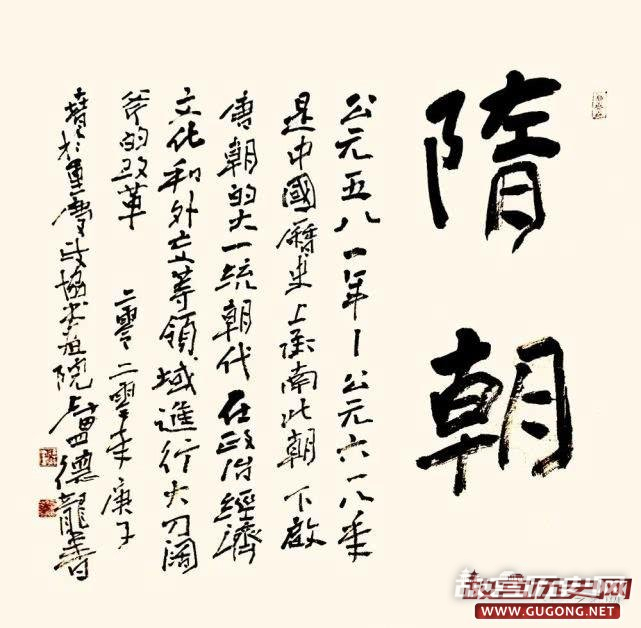 隋朝
公元五八一年—公元六一八年
是中國曆史上承南北朝下啟
唐朝的大一統朝代在政治經濟
文化和外交等領域進行大刀闊
斧的改革 二零二零年庚子
春於重慶政協書画院盧德龍書
故宫历史网
WWW.GUGONG.NET